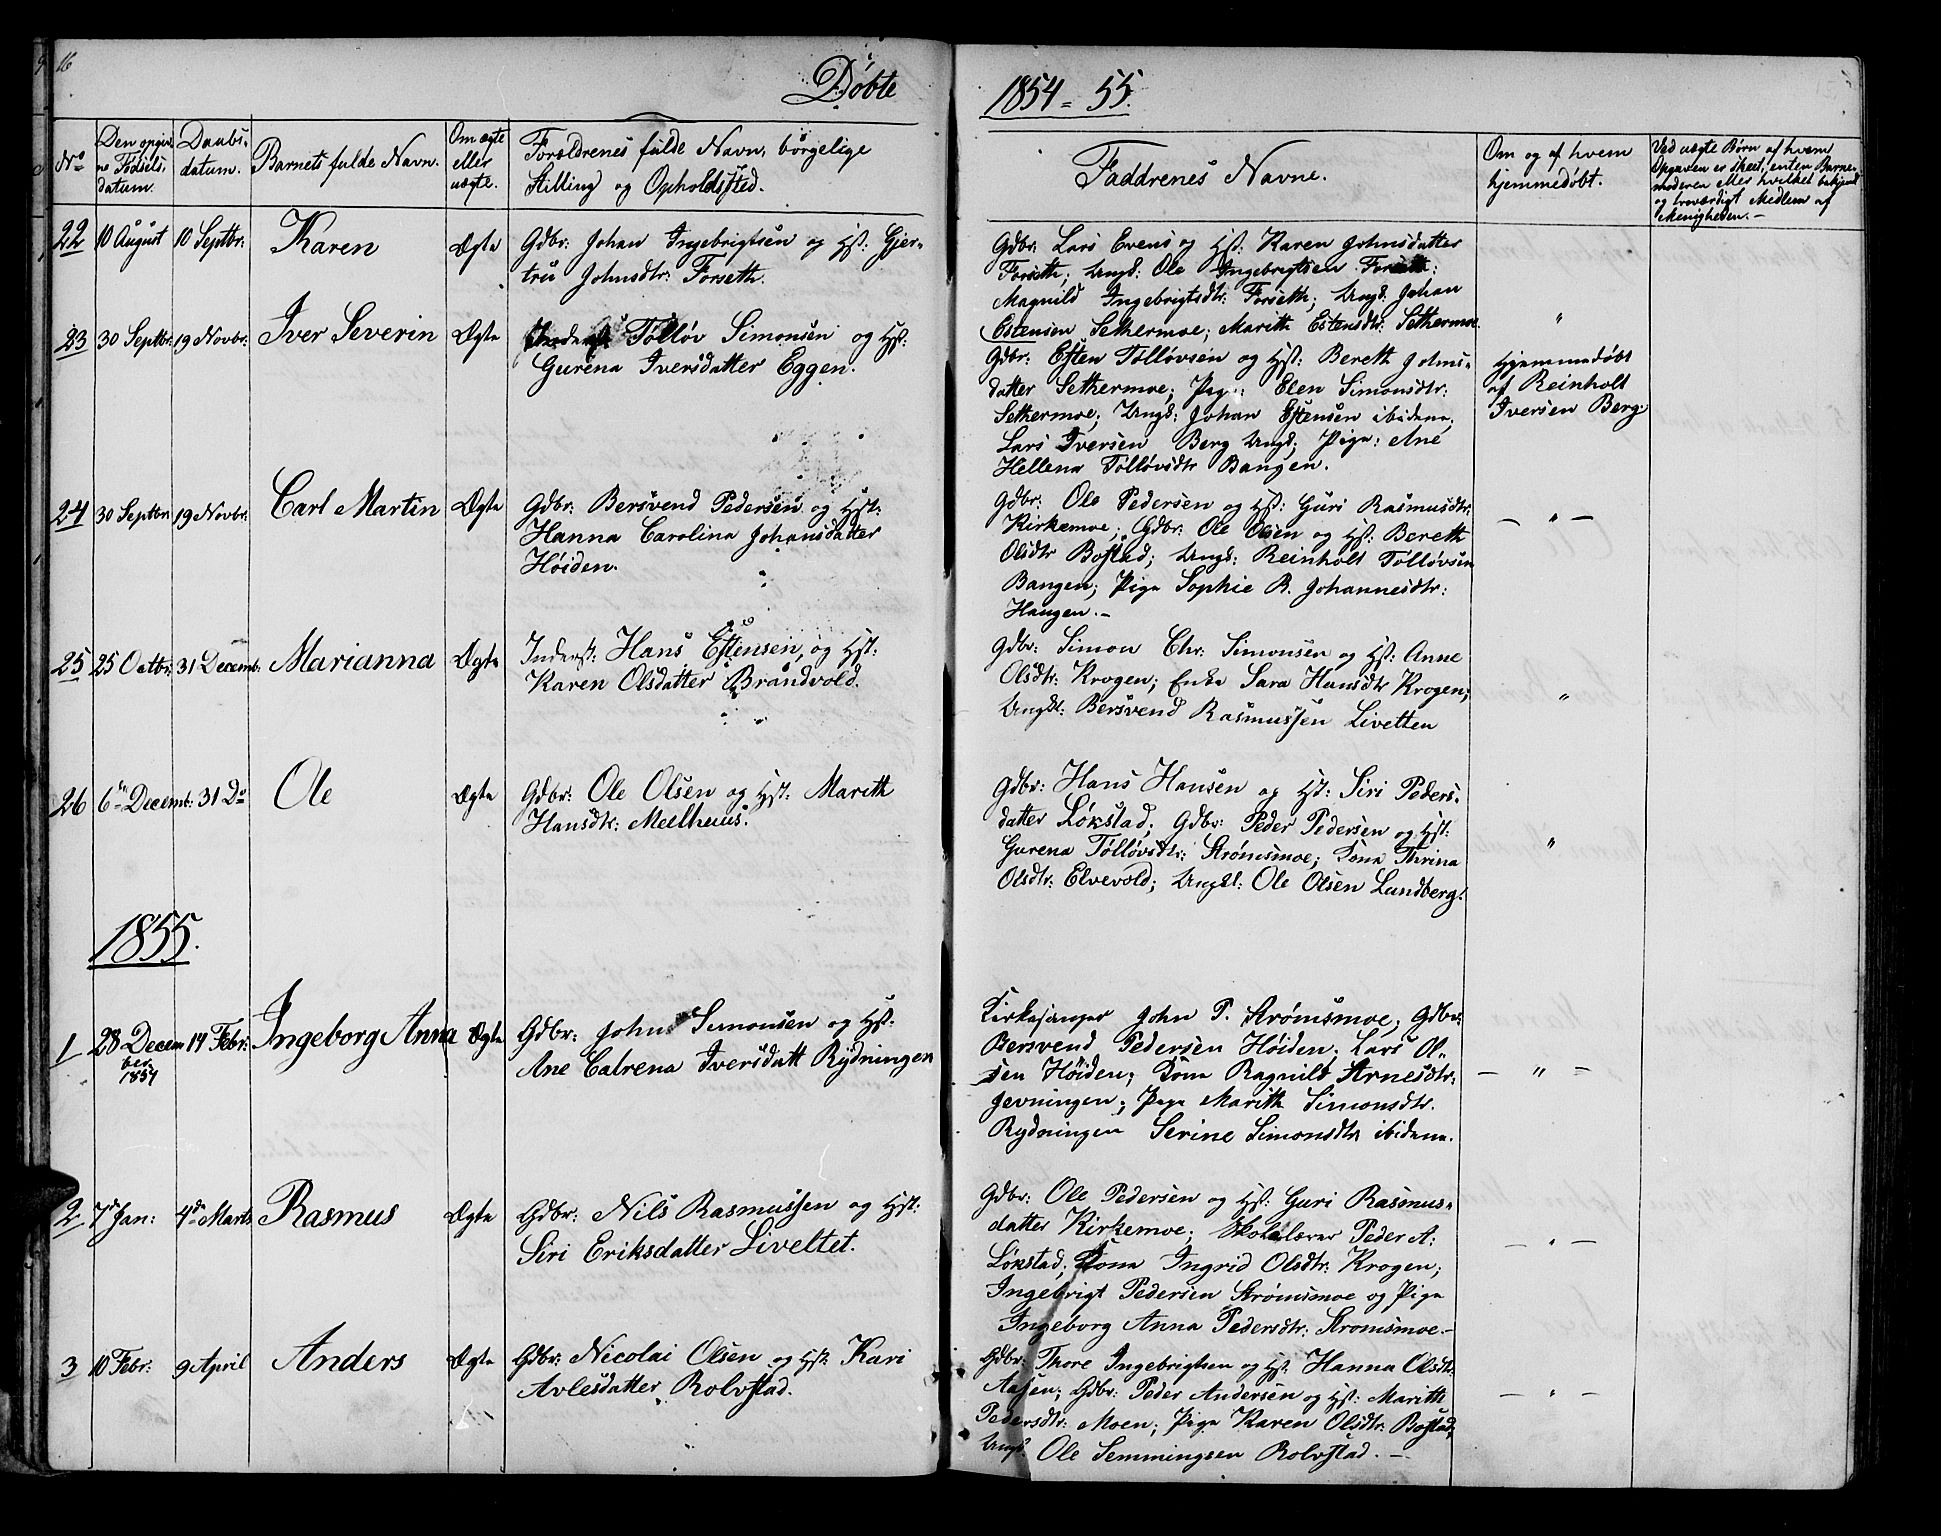 16
Døbte
1854 = 55.
No
Den opgiv-
ne Fødsels-
datum.
Daabs-
datum.
Barnets fulde Navn.
Om ægte
eller
uægte.
Forældrenes fulde Navn, borgelige
Stilling og Opholdssted.
Faddrenes Navne.
Om og af hvem
hjemmedøbt.
Ved uægte Børn af hvem
Opgaven er skeet, enten Barne-
moderen eller hvilket bekjendt
og troværdigt Medlem af
Menigheden.-
22 10 August 10 Septbr: Karen Ægte Gdbr: Johan Ingebrigtsen og Hst: Gjer-
tru Johnsdtr: Forseth.
Gdbr: Lars Evens og Hst: Karen Johnsdatter
Forseth; Ungk: Ole Ingebrigtsen Forseth:
Magnild Ingebrigtsdtr: Forseth; Ungk: Johan
Estensen Sethermoe; Marith Estensdtr: Sethermoe. "
23 30 Septbr: 19 Novbr: Iver Severin Ægte Tølløv Simonsen og Hst:
Gurena Iversdatter Eggen.
Gdbr: Esten Tølløvsen og Hst: Bereth Johns-
datter Sethermoe; Pige: Elen Simonsdtr:
Sethermoe; Ungk: Johan Estensen ibidem;
Lars Iversen Berg Ungk; Pige: Ane
Hellena Tølløvsdtr Bangen.
Hjemmedøbt
af Reinholt
Iversen Berg.
24 30 Septbr 19 Novbr: Carl Martin Ægte Gdbr: Bersvend Pedersen og Hst:
Hanna Carolina Johansdatter
Høiden.
Gdbr: Ole Pedersen og Hst: Guri Rasmusdtr:
Kirkemoe; Gdbr: Ole Olsen og Hst: Bereth
Olsdtr Bostad; Ungk: Reinholt Tølløvsen
Bangen; Pige Sophie B. Johannesdtr:
Haugen.-
— " —
25 25 Octbr: 31 Decemb: Marianna Ægte Inderst: Hans Estensen, og Hst:
Karen Olsdatter Brandvold.
Gdbr: Simon Chr: Simonsen og Hst: Anne
Olsdtr: Krogen; Enke Sara Hansdtr Krogen;
Ungkl: Bersvend Rasmussen Livetten
"
26 6te Decemb: 31 Do Ole Ægte Gdbr: Ole Olsen og Hst: Marith
Hansdtr: Meelhuus.
Gdbr: Hans Hansen og Hst: Siri Peders-
datter Løkstad; Gdbr: Peder Pedersen og Hst:
Gurena Tølløvsdtr: Strømsmoe; Kona Thrina
Olsdtr: Elvevold; Ungkl: Ole Olsen Lundberg.
"
1855.
1 28 Decem
ber
1854
14 Febr: Ingeborg Anna Ægte Gdbr: John Simonsen og Hst:
Ane Catrena Iversdatt Rydningen
Kirkesanger John P. Strømsmoe; Gdbr:
Bersvend Pedersen Høiden; Lars Ol-
sen Høiden; Kona Ragnild Arnesdtr:
Jevningen; Pige Marith Simonsdtr.
Rydningen Serine Simonsdtr ibidem.
— " —
2 7de Jan: 4de Marts Rasmus Ægte Gdbr: Nils Rasmussen og Hst:
Siri Eriksdatter Liveltet.
Gdbr: Ole Pedersen og Hst: Guri Rasmus-
datter Kirkemoe; Skolelærer Peder A:
Løkstad; Kona Ingrid Olsdtr: Krogen;
Ingebrigt Pedersen Strømsmoe og Pige
Ingeborg Anna Pedersdtr: Stromsmoe.-
— " —
3 10 Febr: 9 April Anders Ægte Gdbr: Nicolai Olsen og Hst: Kari
Avlesdatter Rolvstad.
Gdbr: Thore Ingebrigtsen og Hst: Hanna Olsdtr:
Aasen; Gdbr: Peder Andersen og Hst: Marith
Pedersdtr: Moen; Pige Karen Olsdtr: Bostad;
Ungk: Ole Semmingsen Rolvstad. -
— " —